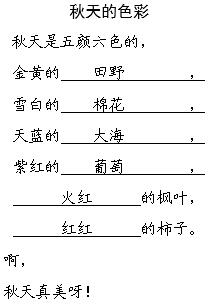 秋天的色彩
秋天是五颜六色的,
金黄的 田野 ,
雪白的 棉花 ,
天蓝的 大海 ,
紫红的 葡萄 ,
火红 的枫叶,
红红 的柿子。
啊,
秋天真美呀!